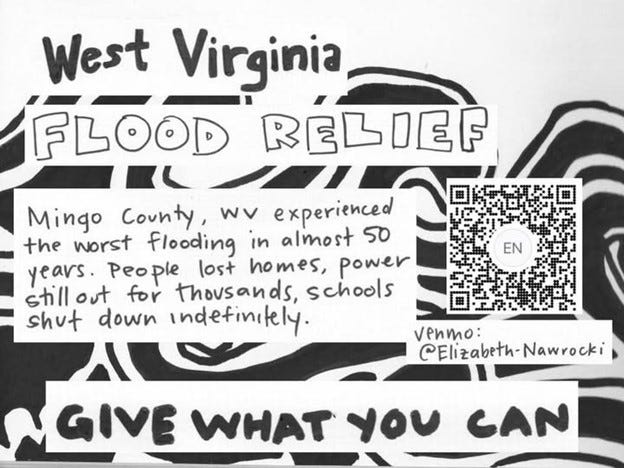 West Virginia
FLOOD RELIEF
Mingo County, WV experienced
the worst flooding in almost 50
years. People lost homes, power
still out for thousands, schools
shut down indefinitely.
EN
venmo:
@Elizabeth-Nawrocki
GIVE WHAT YOU CAN